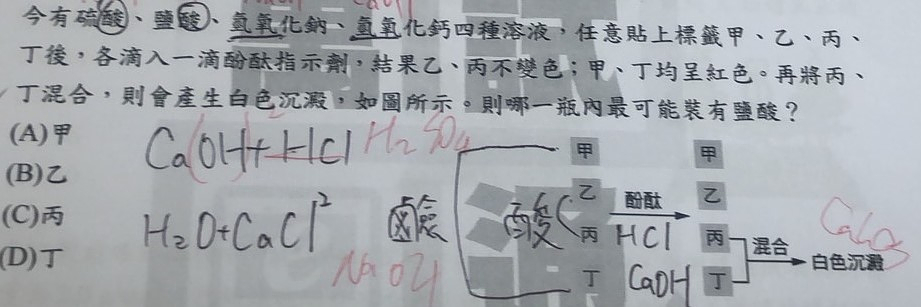 今有硫酸、鹽酸、氫氧化鈉、氫氧化鈣四種溶液，任意貼上標籤甲、乙、丙、
丁後，各滴入一滴酚酞指示劑，結果乙、丙不變色；甲、丁均呈紅色。再將丙、
丁混合，則會產生白色沉澱，如圖所示。則哪一瓶內最可能裝有鹽酸？
(A)甲
(B)乙
(C)丙
(D)丁
Ca(OH)+HCl H2SO4
H2O+CaCl²
鹼
NaOH
酸
甲
乙
丙
丁
酚酞
HCl
CaOH
甲
乙
丙
丁
混合
白色沉澱